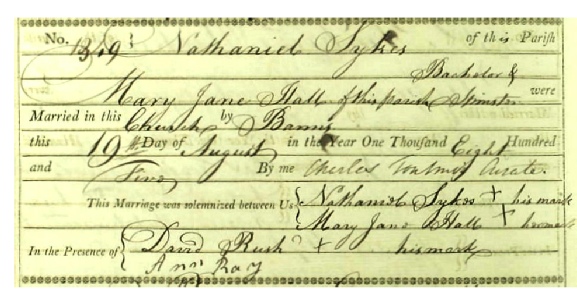 No. 1349 Nathaniel Sykes of this Parish
Bachelor &
Mary Jane Hall of this parish Spinster were
Married in this Church by Banns
this 19th Day of August in the Year One Thousand Eight Hundred
and Five By me Charles Curate.
This Marriage was solemnized between Us { Nathaniel Sykes + his mark
Mary Jane Hall + her mark
In the Presence of { David Rush + his mark
Ann Ray